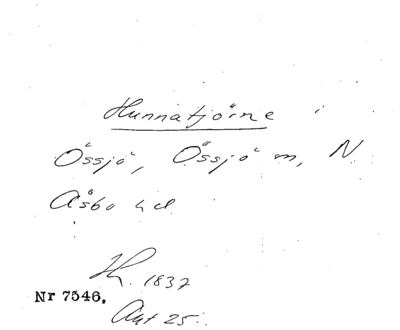 Hunnatjörne i
Össjö, Össjö m, N
Åsbo hd
H. 1837
Nr 7546.
Akt 25.